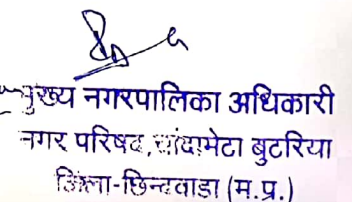 मुख्य नगरपालिका अधिकारी
नगर परिषद, चांदामेटा बुटरिया
जिला-छिन्दवाडा (म.प्र.)